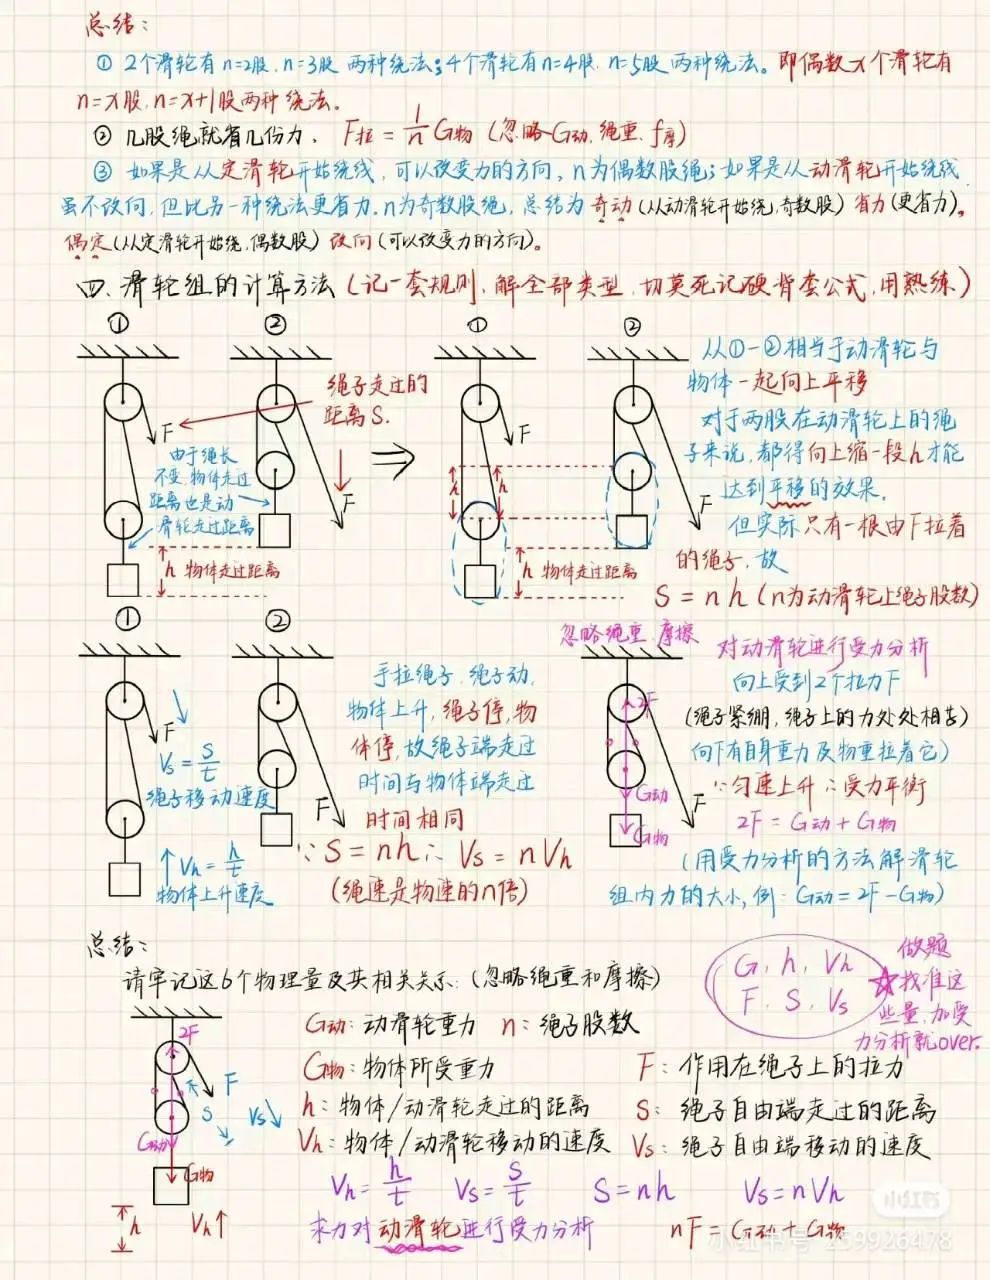 总结：
① 2个滑轮有n=2股，n=3股 两种绕法；4个滑轮有n=4股，n=5股 两种绕法。即偶数x个滑轮有
n=x股，n=x+1股两种绕法。
② 几股绳就省几份力，F拉=1/n G物（忽略G动，绳重，f摩）
③ 如果是从定滑轮开始绕线，可以改变力的方向，n为偶数股绳；如果是从动滑轮开始绕线
虽不改向，但比另一种绕法更省力，n为奇数股绳，总结为奇动（从动滑轮开始绕，奇数股）省力（更省力），
偶定（从定滑轮开始绕，偶数股）改向（可以改变力的方向）。
四、滑轮组的计算方法（记一套规则，解全部类型，切莫死记硬背套公式，用熟练）
① ② ① ②
绳子走过的
距离S.
F
F
由于绳长
不变，物体走过
距离也是动
滑轮走过距离
h 物体走过距离
F
F
h
h
h 物体走过距离
从①-②相当于动滑轮与
物体一起向上平移
对于两股在动滑轮上的绳
子来说，都得向上缩一段h才能
达到平移的效果。
但实际只有一根由F拉着
的绳子，故
S=nh（n为动滑轮上绳子股数）
① ②
F
Vs=S/t
绳子移动速度
↑Vh=h/t
物体上升速度
F
手拉绳子，绳子动，
物体上升，绳子停，物
体停，故绳子端走过
时间与物体端走过
时间相同
∵S=nh∴Vs=nVh
（绳速是物速的n倍）
忽略绳重，摩擦
2F
G动
G物
F
对动滑轮进行受力分析
向上受到2个拉力F
（绳子紧绷，绳子上的力处处相等）
向下有自身重力及物重拉着它）
∵匀速上升∴受力平衡
2F=G动+G物
（用受力分析的方法解滑轮
组内力的大小，例：G动=2F-G物）
总结：
请牢记这6个物理量及其相关关系：（忽略绳重和摩擦）
G，h，Vh
F，S，Vs
做题
☆找准这
些量，加受
力分析就over.
2F
F
S
Vs
G动
G物
h
Vh↑
G动：动滑轮重力 n：绳子股数
G物：物体所受重力 F：作用在绳子上的拉力
h：物体/动滑轮走过的距离 S：绳子自由端走过的距离
Vh：物体/动滑轮移动的速度 Vs：绳子自由端移动的速度
Vh=h/t Vs=S/t S=nh Vs=nVh
求力对动滑轮进行受力分析 nF=G动+G物
小红书
小红书号 259926478